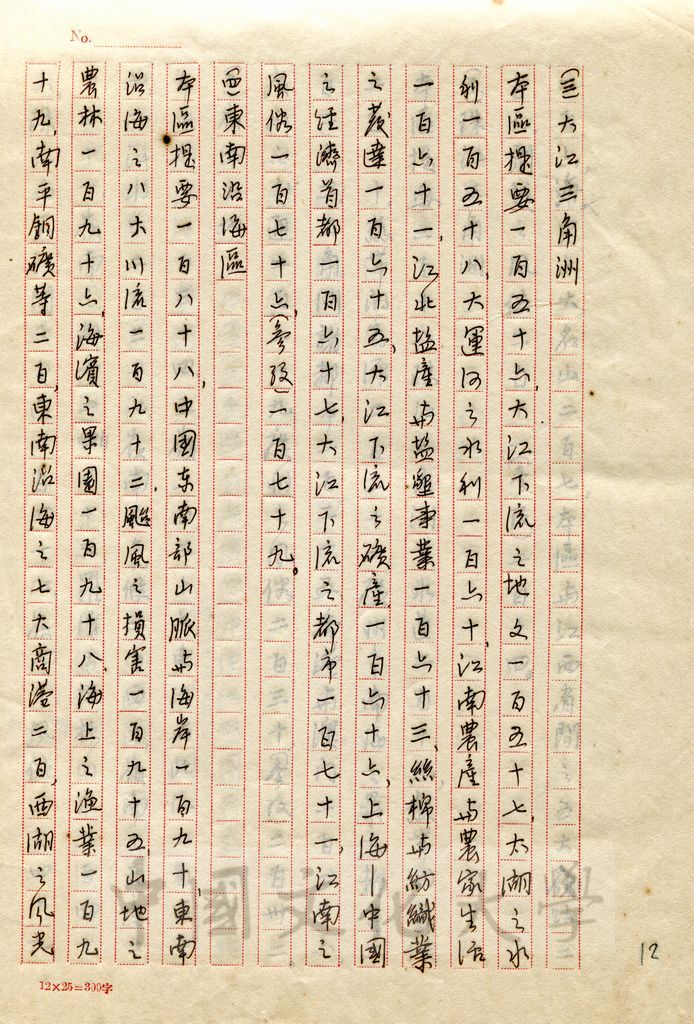 No.
(三)大江三角洲
本區提要一百五十六,大江下流之地文一百五十七,太湖之水
利一百五十八,大運河之水利一百六十,江南農產与農家生活
一百六十一,江北盐產与盐墾事業一百六十三,絲棉与紡織業
之發達一百六十五,大江下流之礦產一百六十六,上海—中國
之经濟首都一百六十七,大江下流之都市一百七十一,江南之
風俗一百七十六,(參攷)一百七十九。
(四)東南沿海區
本區提要一百八十八,中國东南部山脈与海岸一百九十,東南
沿海之八大川流一百九十二,颱風之損害一百九十五山地之
農林一百九十六,海濱之果園一百九十八,海上之渔業一百九
十九,南平銅礦等二百,東南沿海之七大商港二百,西湖之风光
12
12×25=300字
中國文化大學